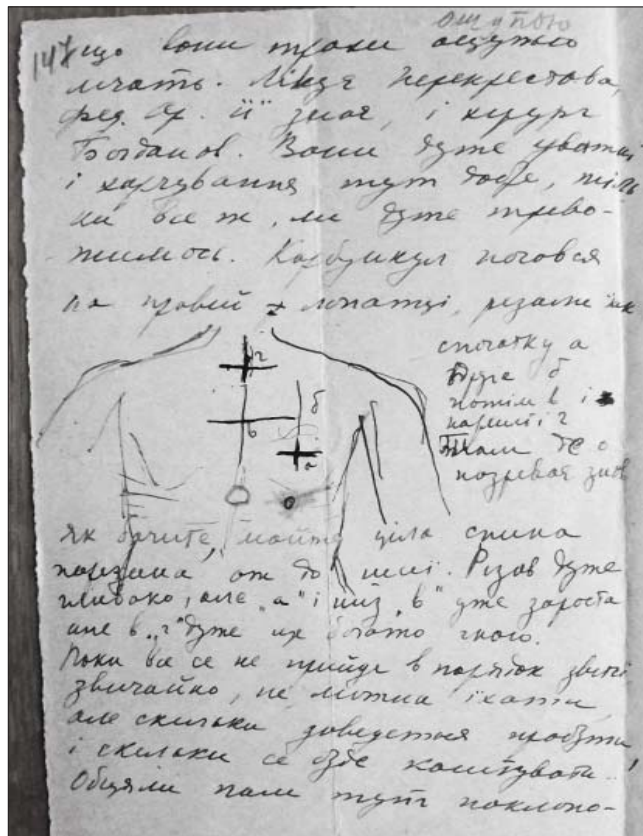 ощупою
147 що вони трохи ощужно
мчать. Лікує Перекрестова,
фед. Ор. її знає, і хірург
Богданов. Вони дуже уважні
і харчування тут добре, тіль
ки все ж, ми дуже триво-
жимось. Карбункул почовся
на правій лопатці, різали так
спочатку а
друге б
потім в і
нарешті г
Там де о
назреває знов
г
б
в
а
о
Як бачите, майже ціла спина
порізана, аж до шиї. Різав дуже
глибоко, але „а" і низ „в" уже зароста
але в „г" дуже ще богато гною.
Поки все се не прийде в порядок звісті
звичайно, не можна їхати,
але скільки доведеться пробути
і скільки се буде коштувати..!
Обіцяли нам тут поклопо-